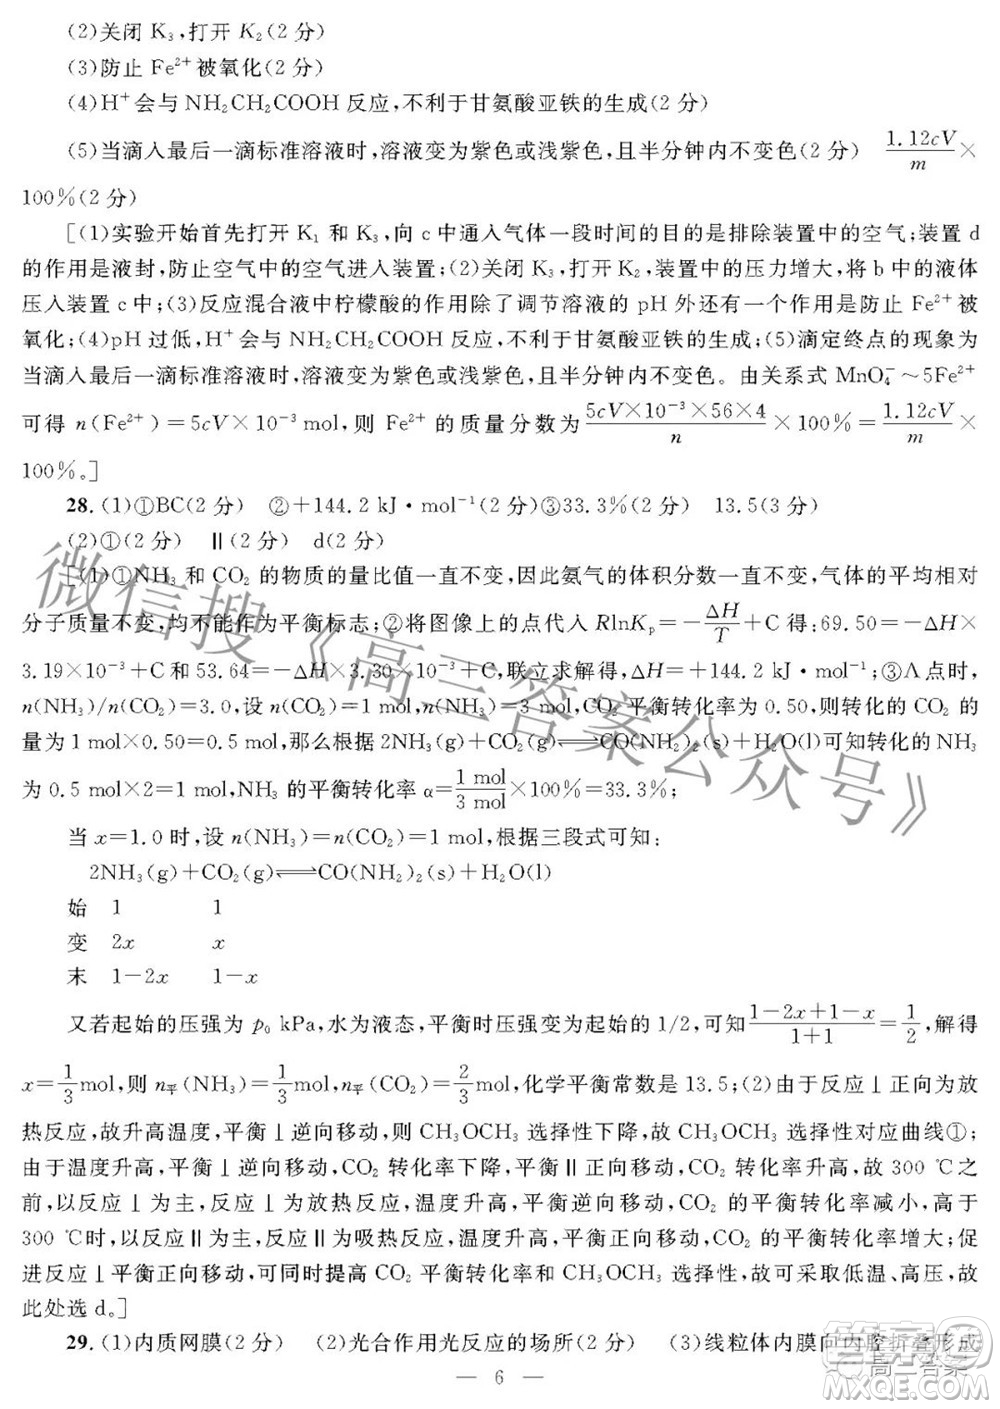 (2)关闭 K₃,打开 K₂(2 分)
(3)防止 Fe²⁺ 被氧化(2 分)
(4)H⁺ 会与 NH₂CH₂COOH 反应,不利于甘氨酸亚铁的生成(2 分)
(5)当滴入最后一滴标准溶液时,溶液变为紫色或浅紫色,且半分钟内不变色(2 分) 1.12cV/m ×
100%(2 分)
[(1)实验开始首先打开 K₁ 和 K₃,向 c 中通入气体一段时间的目的是排除装置中的空气;装置 d
的作用是液封,防止空气中的空气进入装置;(2)关闭 K₃,打开 K₂,装置中的压力增大,将 b 中的液体
压入装置 c 中;(3)反应混合液中柠檬酸的作用除了调节溶液的 pH 外还有一个作用是防止 Fe²⁺ 被
氧化;(4)pH 过低,H⁺ 会与 NH₂CH₂COOH 反应,不利于甘氨酸亚铁的生成;(5)滴定终点的现象为
当滴入最后一滴标准溶液时,溶液变为紫色或浅紫色,且半分钟内不变色。由关系式 MnO₄⁻~5Fe²⁺
可得 n(Fe²⁺)=5cV×10⁻³ mol,则 Fe²⁺ 的质量分数为 5cV×10⁻³×56×4/n ×100%= 1.12cV/m ×
100%。]
28.(1)①BC(2 分) ②+144.2 kJ·mol⁻¹(2 分)③33.3%(2 分) 13.5(3 分)
(2)①(2 分) Ⅱ(2 分) d(2 分)
[(1)①NH₃ 和 CO₂ 的物质的量比值一直不变,因此氨气的体积分数一直不变,气体的平均相对
分子质量不变,均不能作为平衡标志;②将图像上的点代入 RlnKₚ=-ΔH/T+C 得:69.50=-ΔH×
3.19×10⁻³+C 和 53.64=-ΔH×3.30×10⁻³+C,联立求解得,ΔH=+144.2 kJ·mol⁻¹;③A 点时,
n(NH₃)/n(CO₂)=3.0,设 n(CO₂)=1 mol,n(NH₃)=3 mol,CO₂ 平衡转化率为 0.50,则转化的 CO₂ 的
量为 1 mol×0.50=0.5 mol,那么根据 2NH₃(g)+CO₂(g)⇌CO(NH₂)₂(s)+H₂O(l)可知转化的 NH₃
为 0.5 mol×2=1 mol,NH₃ 的平衡转化率 α= 1 mol/3 mol ×100%=33.3%;
当 x=1.0 时,设 n(NH₃)=n(CO₂)=1 mol,根据三段式可知:
2NH₃(g)+CO₂(g)⇌CO(NH₂)₂(s)+H₂O(l)
始 1 1
变 2x x
末 1-2x 1-x
又若起始的压强为 p₀ kPa,水为液态,平衡时压强变为起始的 1/2,可知 1-2x+1-x/1+1 = 1/2,解得
x=1/3 mol,则 n平(NH₃)=1/3 mol,n平(CO₂)=2/3 mol,化学平衡常数是 13.5;(2)由于反应Ⅰ正向为放
热反应,故升高温度,平衡Ⅰ逆向移动,则 CH₃OCH₃ 选择性下降,故 CH₃OCH₃ 选择性对应曲线①;
由于温度升高,平衡Ⅰ逆向移动,CO₂ 转化率下降,平衡Ⅱ正向移动,CO₂ 转化率升高,故 300 ℃之
前,以反应Ⅰ为主,反应Ⅰ为放热反应,温度升高,平衡逆向移动,CO₂ 的平衡转化率减小,高于
300 ℃时,以反应Ⅱ为主,反应Ⅱ为吸热反应,温度升高,平衡正向移动,CO₂ 的平衡转化率增大;促
进反应Ⅰ平衡正向移动,可同时提高 CO₂ 平衡转化率和 CH₃OCH₃ 选择性,故可采取低温、高压,故
此处选 d。]
29.(1)内质网膜(2 分) (2)光合作用光反应的场所(2 分) (3)线粒体内膜向内腔折叠形成
— 6 —
微信搜《高三答案公众号》
答案圈
高三答案
MXQE.COM